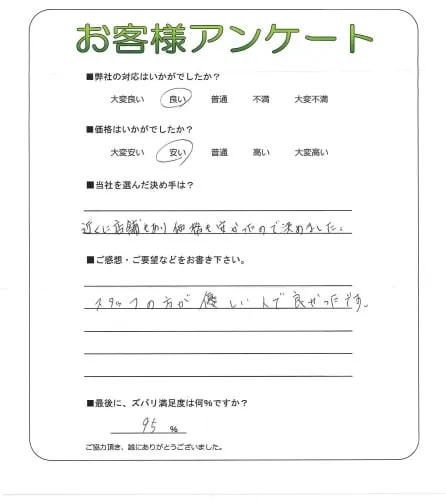 お客様アンケート
■弊社の対応はいかがでしたか?
大変良い 良い 普通 不満 大変不満
■価格はいかがでしたか?
大変安い 安い 普通 高い 大変高い
■当社を選んだ決め手は?
近くに店舗もあり価格も安かったので決めました。
■ご感想・ご要望などをお書き下さい。
スタッフの方が優しい人で良かったです。
■最後に、ズバリ満足度は何%ですか?
95 %
ご協力頂き、誠にありがとうございました。